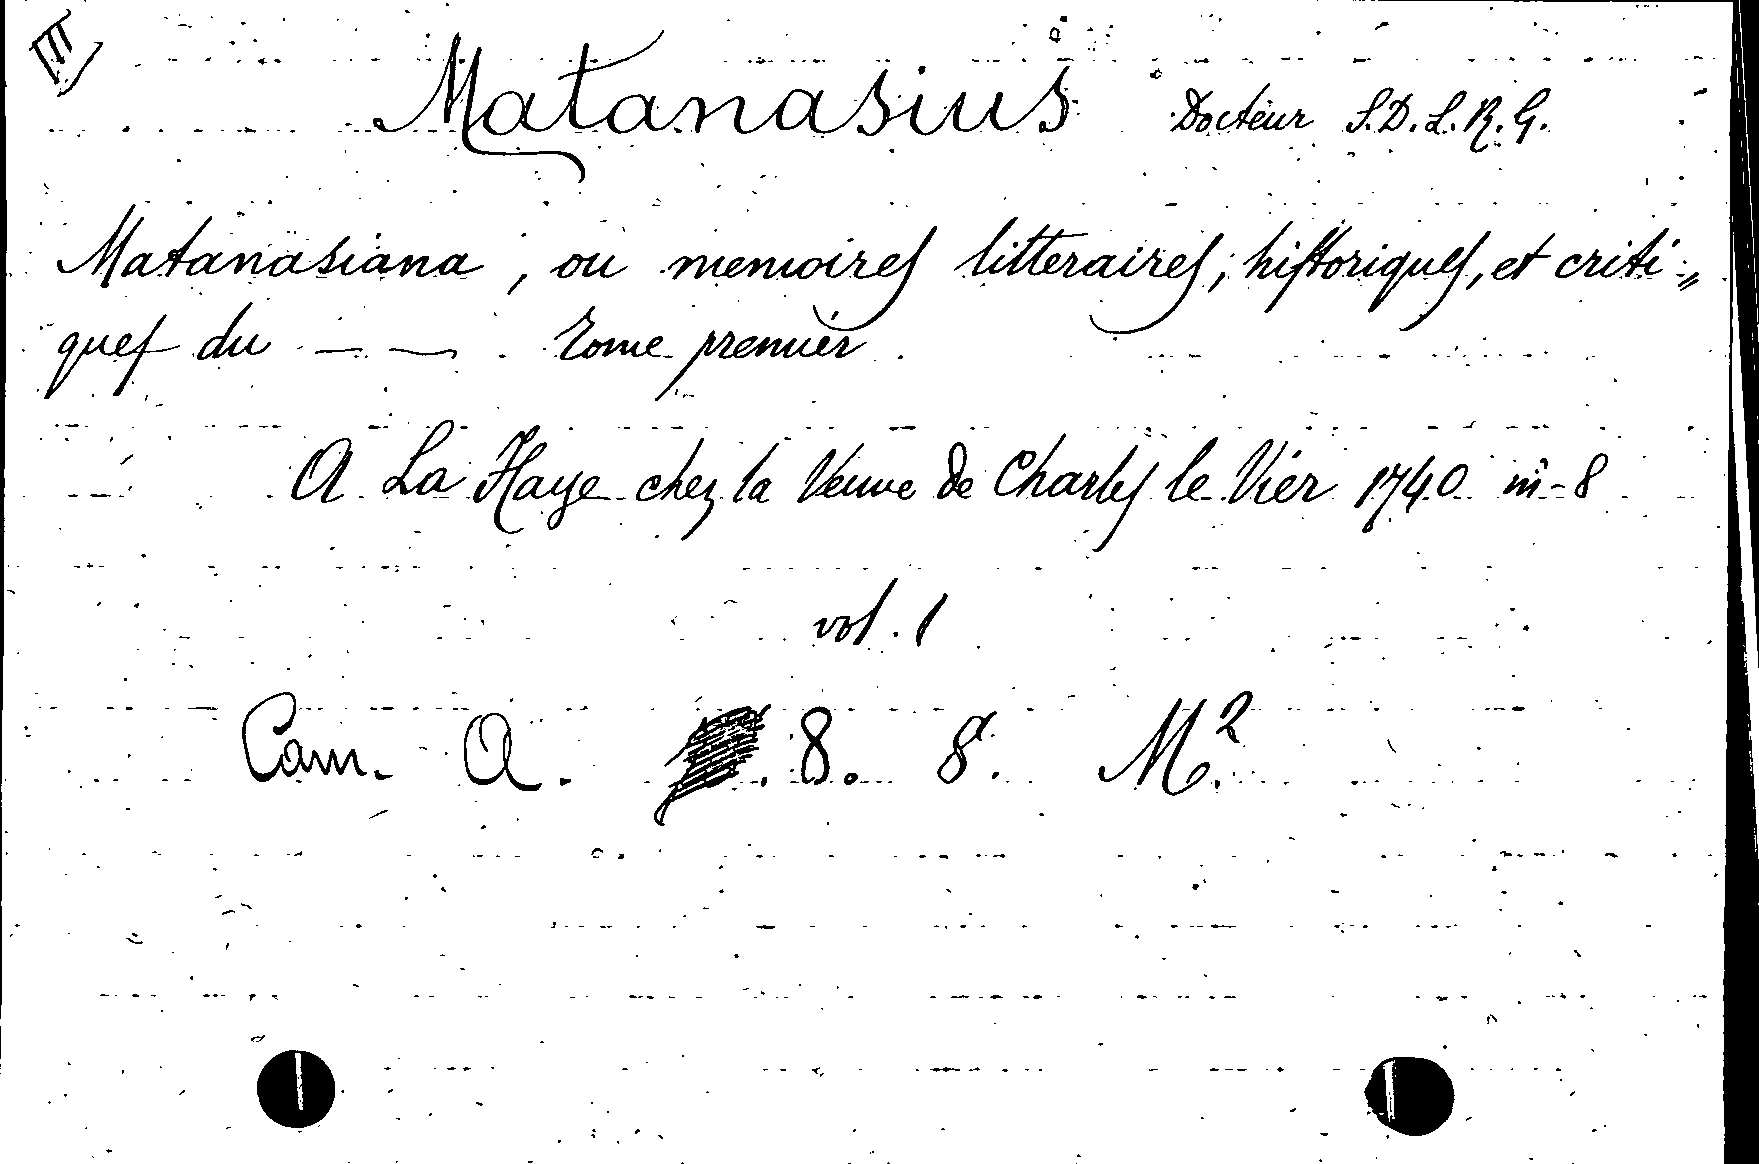 III
Matanasius Docteur S.D.L.R.G.
Matanasiana, ou memoires litteraires, historiques, et criti-
ques du — — . Tome premier.
A La Haye chez la Veuve de Charles le Vier 1740 in-8
vol. 1
Cam. A. . 8. 8. M.2